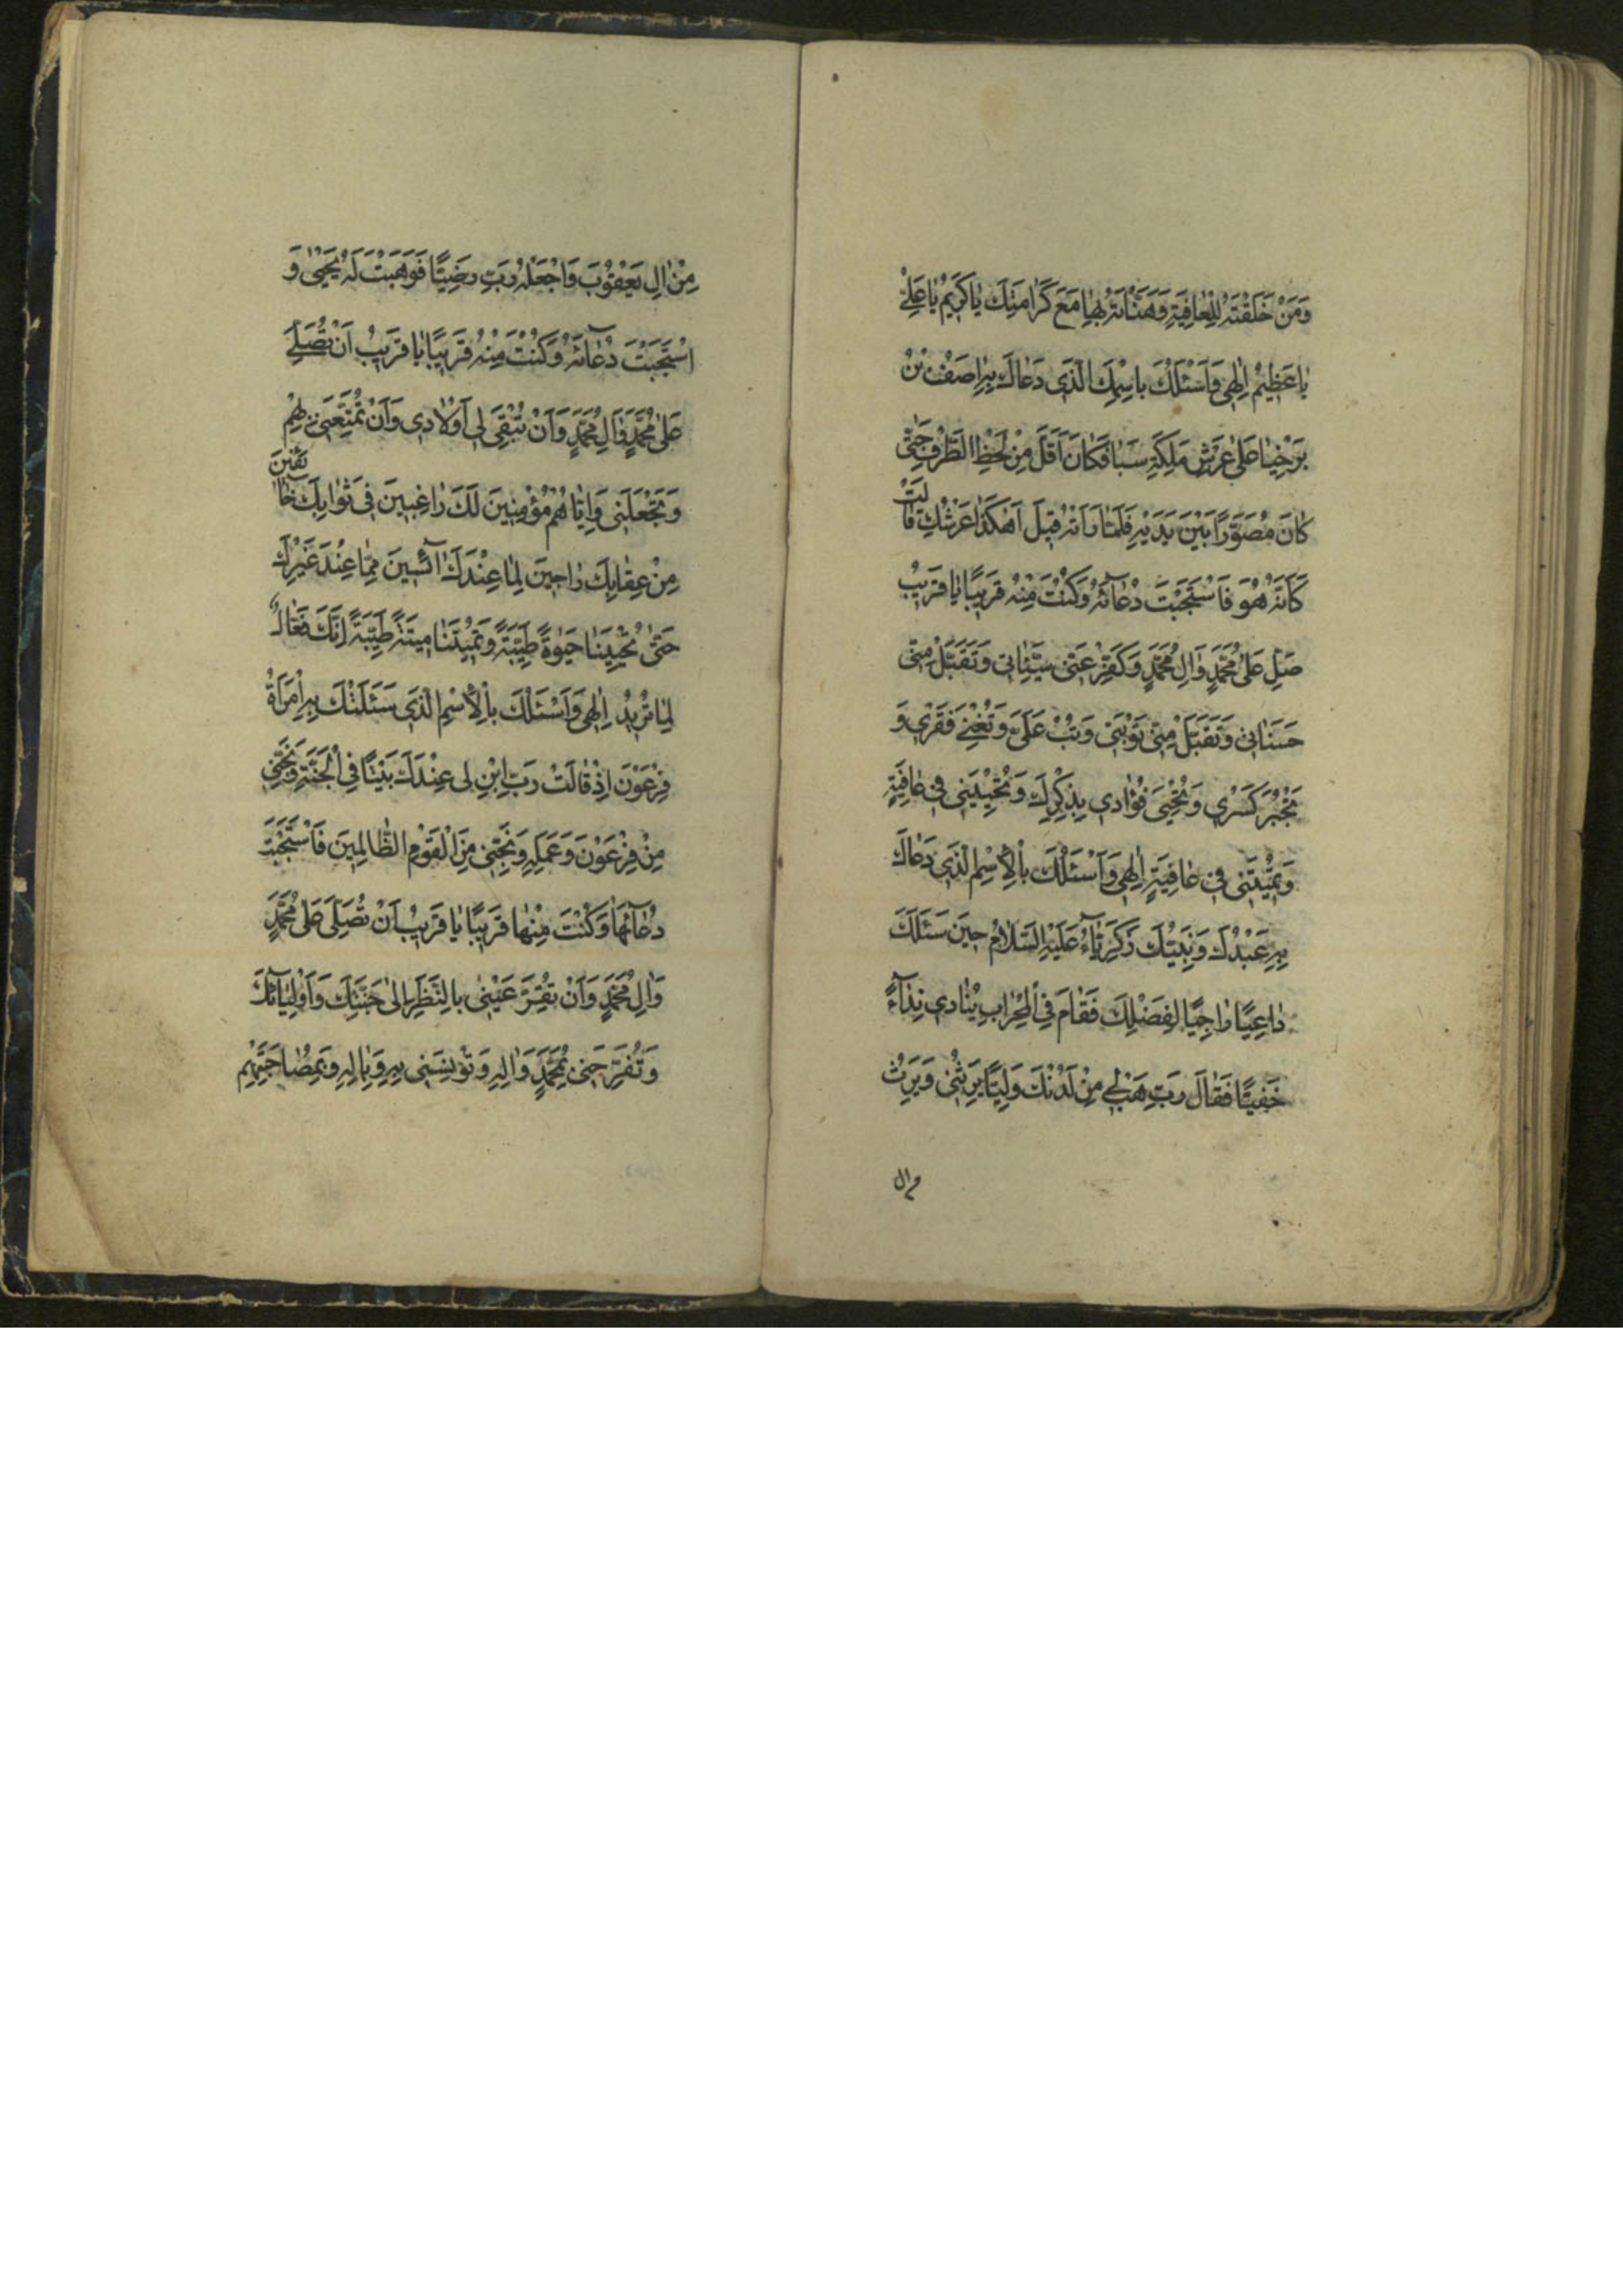 وَمَنْ خَلَقْتَهُ لِلْعٰافِيَةِ وَهَنَّاْتَهُ بِهٰا مَعَ كَرٰامَتِكَ يٰا كَرِيمُ يٰا عَلِىُّ
يٰا عَظِيمُ اِلٰهِى وَاَسْئَلُكَ بِاسْمِكَ الَّذِى دَعٰاكَ بِهِ اصَفُ بْنُ
بَرْخِيٰا عَلىٰ عَرْشِ مَلِكَةِ سَبَا فَكٰانَ اَقَلَّ مِنْ لَحْظِ الطَّرْفِ حَتّٰى
كٰانَ مُصَوَّرًا بَيْنَ يَدَيْهِ فَلَمّٰا رَاَتْهُ قِيلَ اَهٰكَذٰا عَرْشُكِ قٰالَتْ
كَاَنَّهُ هُوَ فَاسْتَجَبْتَ دُعٰآئَهُ وَكُنْتَ مِنْهُ قَرِيبًا يٰا قَرِيبُ
صَلِّ عَلىٰ مُحَمَّدٍ وَالِ مُحَمَّدٍ وَكَفِّرْ عَنّى سَيِّئٰاتى وَتَقَبَّلْ مِنّى
حَسَنٰاتى وَتَقَبَّلْ مِنّى تَوْبَتى وَتُبْ عَلَىَّ وَتُغْنِىَ فَقْرى وَ
تَجْبُرَ كَسْرى وَتُحْيِىَ فُؤٰادى بِذِكْرِكَ وَتُحْيِيَنى فى عٰافِيَةٍ
وَتُمِيتَنى فى عٰافِيَةٍ اِلٰهِى وَاَسْئَلُكَ بِالْاِسْمِ الَّذِى دَعٰاكَ
بِهِ عَبْدُكَ وَنَبِيُّكَ زَكَرِيّٰآءُ عَلَيْهِ السَّلٰامُ حِينَ سَئَلَكَ
دٰاعِيًا رٰاجِيًا لِفَضْلِكَ فَقٰامَ فِى الْمِحْرٰابِ يُنٰادى نِدٰآءً
خَفِيًّا فَقٰالَ رَبِّ هَبْ لى مِنْ لَدُنْكَ وَلِيًّا يَرِثُنى وَيَرِثُ
من ال
مِنْ الِ يَعْقُوبَ وَاجْعَلْهُ رَبِّ رَضِيًّا فَوَهَبْتَ لَهُ يَحْيىٰ وَ
اسْتَجَبْتَ دُعٰآئَهُ وَكُنْتَ مِنْهُ قَرِيبًا يٰا قَرِيبُ اَنْ تُصَلِّىَ
عَلىٰ مُحَمَّدٍ وَالِ مُحَمَّدٍ وَاَنْ تُبْقِىَ لى اَوْلٰادى وَاَنْ تُمَتِّعَنى بِهِمْ
وَتَجْعَلَنى وَاِيّٰاهُمْ مُؤْمِنِينَ لَكَ رٰاغِبِينَ فى ثَوٰابِكَ خٰآئِفِينَ
مِنْ عِقٰابِكَ رٰاجِينَ لِمٰا عِنْدَكَ اٰئِسِينَ مِمّٰا عِنْدَ غَيْرِكَ
حَتّىٰ تُحْيِيَنٰا حَيٰوةً طَيِّبَةً وَتُمِيتَنٰا مِيتَةً طَيِّبَةً اِنَّكَ فَعّٰالٌ
لِمٰا تُرِيدُ اِلٰهِى وَاَسْئَلُكَ بِالْاِسْمِ الَّذِى سَئَلَتْكَ بِهِ امْرَاَةُ
فِرْعَوْنَ اِذْ قٰالَتْ رَبِّ ابْنِ لى عِنْدَكَ بَيْتًا فِى الْجَنَّةِ وَنَجِّنى
مِنْ فِرْعَوْنَ وَعَمَلِهِ وَنَجِّنى مِنَ الْقَوْمِ الظّٰالِمِينَ فَاسْتَجَبْتَ
دُعٰآئَهٰا وَكُنْتَ مِنْهٰا قَرِيبًا يٰا قَرِيبُ اَنْ تُصَلِّىَ عَلىٰ مُحَمَّدٍ
وَالِ مُحَمَّدٍ وَاَنْ تُقِرَّ عَيْنى بِالنَّظَرِ اِلىٰ جَنَّتِكَ وَاَوْلِيٰآئِكَ
وَتُفَرِّحَنى بِمُحَمَّدٍ وَالِهِ وَتُؤْنِسَنى بِهِ وَبِالِهِ وَبِمُصٰاحَبَتِهِمْ